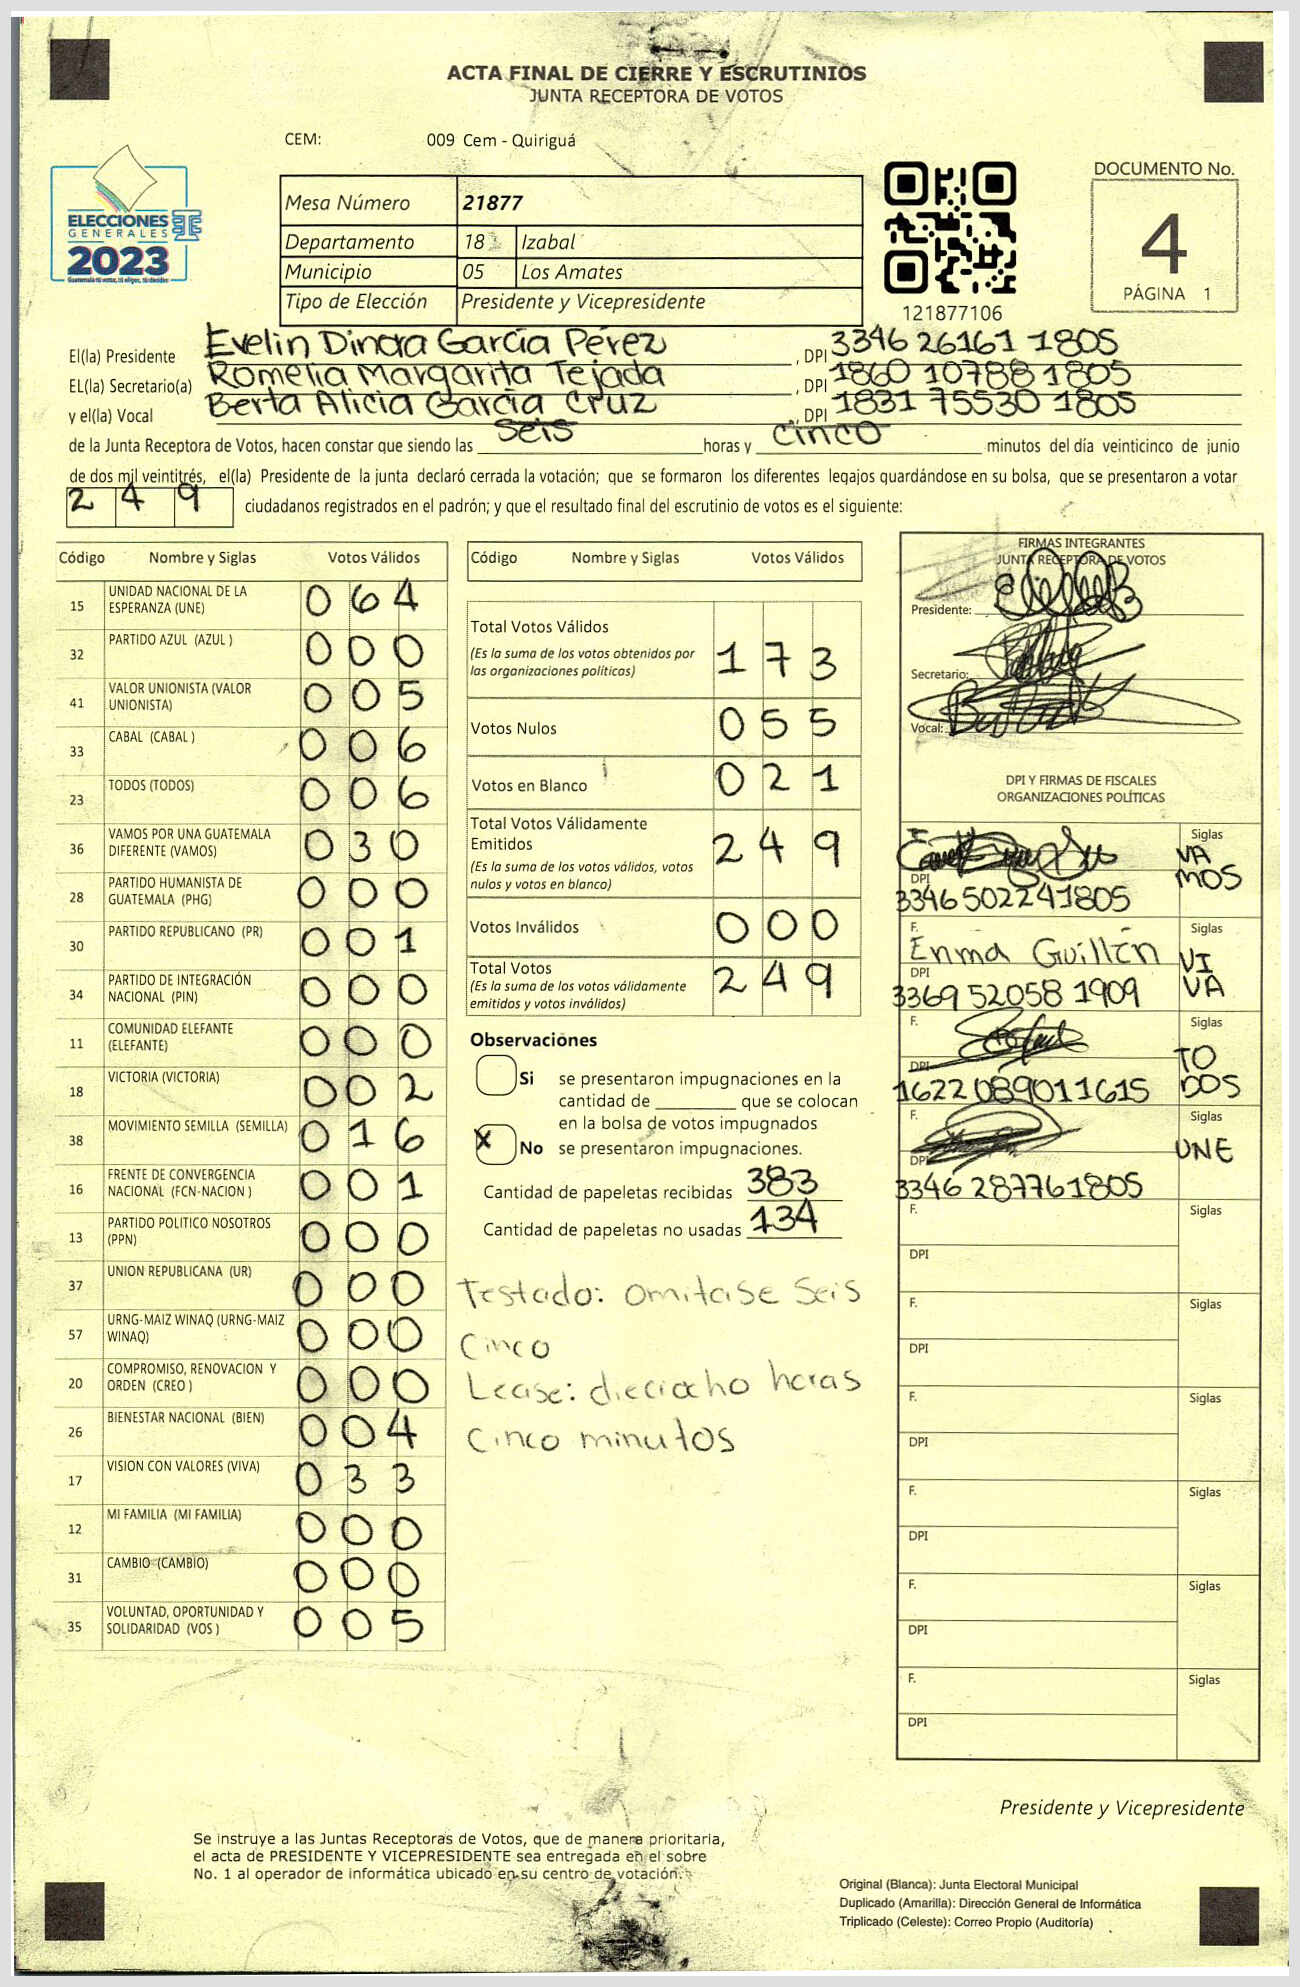 ACTA FINAL DE CIERRE Y ESCRUTINIOS
JUNTA RECEPTORA DE VOTOS
CEM: 009 Cem - Quiriguá
ELECCIONES
GENERALES
2023
Guatemala tú votas, tú eliges, tú decides
Mesa Número 21877
Departamento 18 Izabal
Municipio 05 Los Amates
Tipo de Elección Presidente y Vicepresidente
121877106
DOCUMENTO No.
4
PÁGINA 1
El(la) Presidente Evelin Dinora García Pérez, DPI 3346 26161 1805
EL(la) Secretario(a) Romelia Margarita Tejada, DPI 1860 10788 1805
y el(la) Vocal Berta Alicia García Cruz, DPI 1831 75530 1805
de la Junta Receptora de Votos, hacen constar que siendo las seis horas y cinco minutos del día veinticinco de junio
de dos mil veintitrés, el(la) Presidente de la junta declaró cerrada la votación; que se formaron los diferentes legajos quardándose en su bolsa, que se presentaron a votar
2 4 9 ciudadanos registrados en el padrón; y que el resultado final del escrutinio de votos es el siguiente:
Código Nombre y Siglas Votos Válidos
15 UNIDAD NACIONAL DE LA ESPERANZA (UNE) 0 6 4
32 PARTIDO AZUL (AZUL ) 0 0 0
41 VALOR UNIONISTA (VALOR UNIONISTA) 0 0 5
33 CABAL (CABAL ) 0 0 6
23 TODOS (TODOS) 0 0 6
36 VAMOS POR UNA GUATEMALA DIFERENTE (VAMOS) 0 3 0
28 PARTIDO HUMANISTA DE GUATEMALA (PHG) 0 0 0
30 PARTIDO REPUBLICANO (PR) 0 0 1
34 PARTIDO DE INTEGRACIÓN NACIONAL (PIN) 0 0 0
11 COMUNIDAD ELEFANTE (ELEFANTE) 0 0 0
18 VICTORIA (VICTORIA) 0 0 2
38 MOVIMIENTO SEMILLA (SEMILLA) 0 1 6
16 FRENTE DE CONVERGENCIA NACIONAL (FCN-NACION ) 0 0 1
13 PARTIDO POLITICO NOSOTROS (PPN) 0 0 0
37 UNION REPUBLICANA (UR) 0 0 0
57 URNG-MAIZ WINAQ (URNG-MAIZ WINAQ) 0 0 0
20 COMPROMISO, RENOVACION Y ORDEN (CREO ) 0 0 0
26 BIENESTAR NACIONAL (BIEN) 0 0 4
17 VISION CON VALORES (VIVA) 0 3 3
12 MI FAMILIA (MI FAMILIA) 0 0 0
31 CAMBIO (CAMBIO) 0 0 0
35 VOLUNTAD, OPORTUNIDAD Y SOLIDARIDAD (VOS ) 0 0 5
Código Nombre y Siglas Votos Válidos
Total Votos Válidos 1 7 3
(Es la suma de los votos obtenidos por
las organizaciones políticas)
Votos Nulos 0 5 5
Votos en Blanco 0 2 1
Total Votos Válidamente
Emitidos 2 4 9
(Es la suma de los votos válidos, votos
nulos y votos en blanco)
Votos Inválidos 0 0 0
Total Votos 2 4 9
(Es la suma de los votos válidamente
emitidos y votos inválidos)
Observaciones
Si se presentaron impugnaciones en la
cantidad de que se colocan
en la bolsa de votos impugnados
X No se presentaron impugnaciones.
Cantidad de papeletas recibidas 383
Cantidad de papeletas no usadas 134
Testado: omitase seis
Cinco
Lease: dieciocho horas
Cinco minutos
FIRMAS INTEGRANTES
JUNTA RECEPTORA DE VOTOS
Presidente:
Secretario:
Vocal:
DPI Y FIRMAS DE FISCALES
ORGANIZACIONES POLÍTICAS
F. Siglas VA
DPI MOS
3346 50224 1805
F. Enma Guillén Siglas VI
DPI VA
3369 52058 1909
F. Siglas TO
DPI DOS
1622 08901 1615
F. Siglas
DPI UNE
3346 28776 1805
F. Siglas
DPI
F. Siglas
DPI
F. Siglas
DPI
F. Siglas
DPI
F. Siglas
DPI
F. Siglas
DPI
Presidente y Vicepresidente
Se instruye a las Juntas Receptoras de Votos, que de manera prioritaria,
el acta de PRESIDENTE Y VICEPRESIDENTE sea entregada en el sobre
No. 1 al operador de informática ubicado en su centro de votación.
Original (Blanca): Junta Electoral Municipal
Duplicado (Amarilla): Dirección General de Informática
Triplicado (Celeste): Correo Propio (Auditoría)